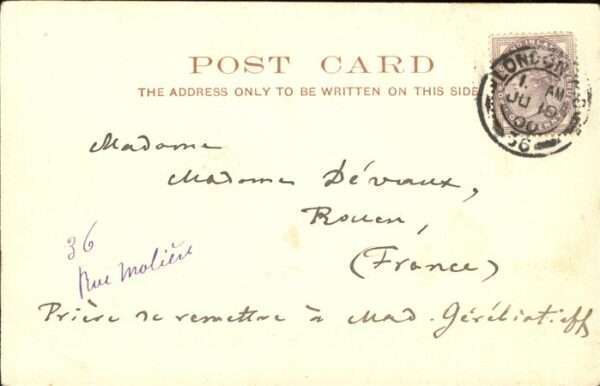 POST CARD
THE ADDRESS ONLY TO BE WRITTEN ON THIS SIDE
LONDON
1 AM
JU 19
00
Madame
Madame Dévaux,
Rouen,
(France)
36
Rue Molière
Prière de remettre à Mad.